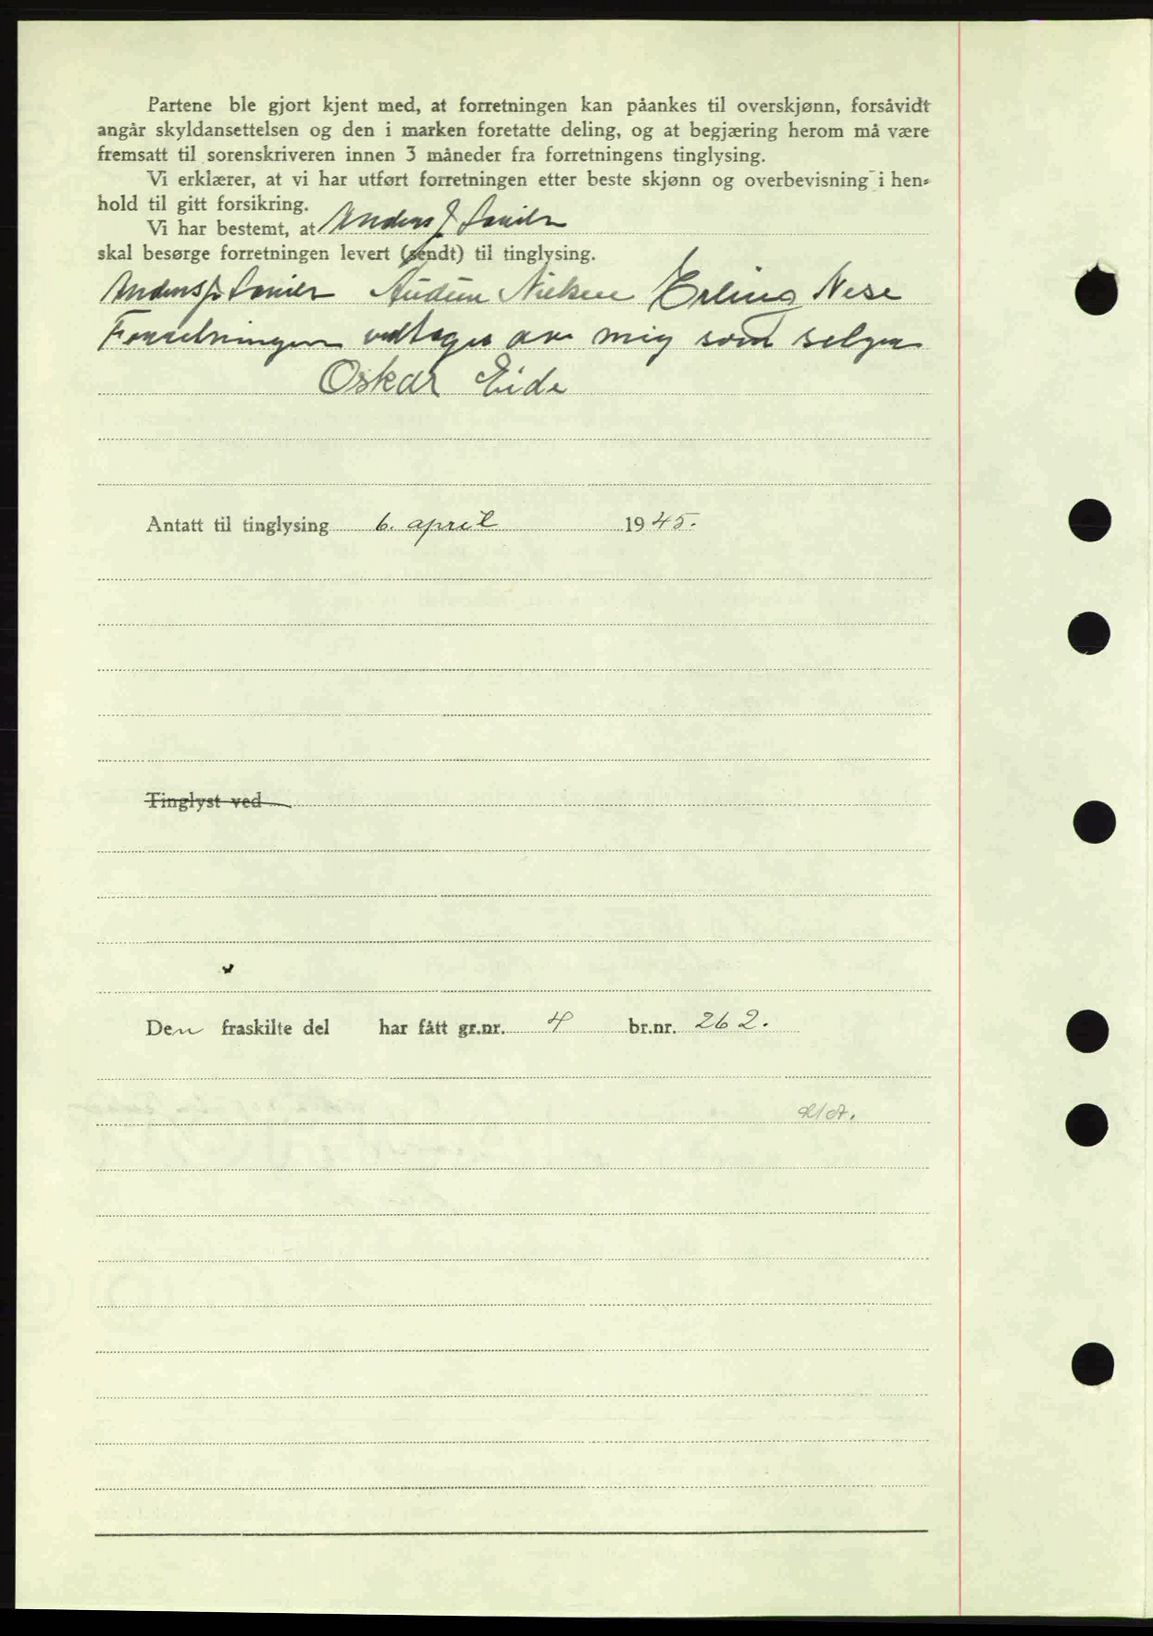 Partene ble gjort kjent med, at forretningen kan påankes til overskjønn, forsåvidt
angår skyldansettelsen og den i marken foretatte deling, og at begjæring herom må være
fremsatt til sorenskriveren innen 3 måneder fra forretningens tinglysing.
Vi erklærer, at vi har utført forretningen etter beste skjønn og overbevisning i hen-
hold til gitt forsikring.
Vi har bestemt, at Anders J
skal besørge forretningen levert (sendt) til tinglysing.
Anders J Audun Nielsen Erling Nese
Forretningen vedtages av mig som selger
Oskar Eide
Antatt til tinglysing 6. april 1945.
Tinglyst ved
Den fraskilte del har fått gr.nr. 4 br.nr. 262.